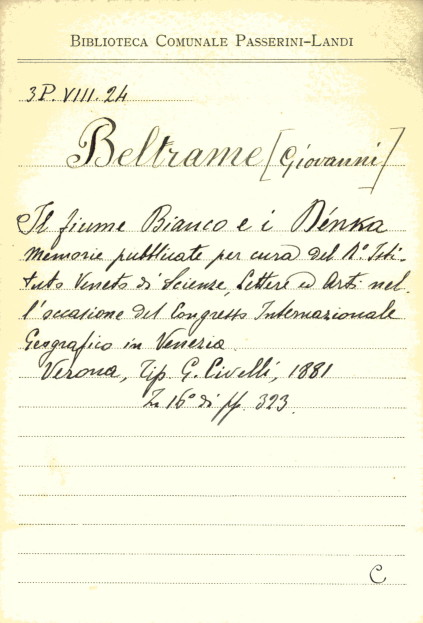 BIBLIOTECA COMUNALE PASSERINI-LANDI
3P.VIII.24
Beltrame [Giovanni]
Il fiume Bianco e i Dénka
Memorie pubblicate per cura del R.º Isti-
tuto Veneto di Scienze, Lettere ed Arti nel-
l'occasione del Congresso Internazionale
Geografico in Venezia.
Verona, Tip. G. Civelli, 1881
In 16º di pp. 323.
C